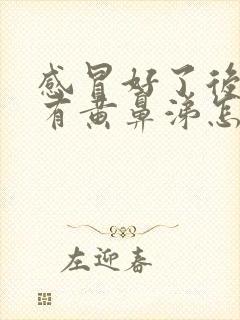 感冒好了後
有黃鼻涕怎
左迎春